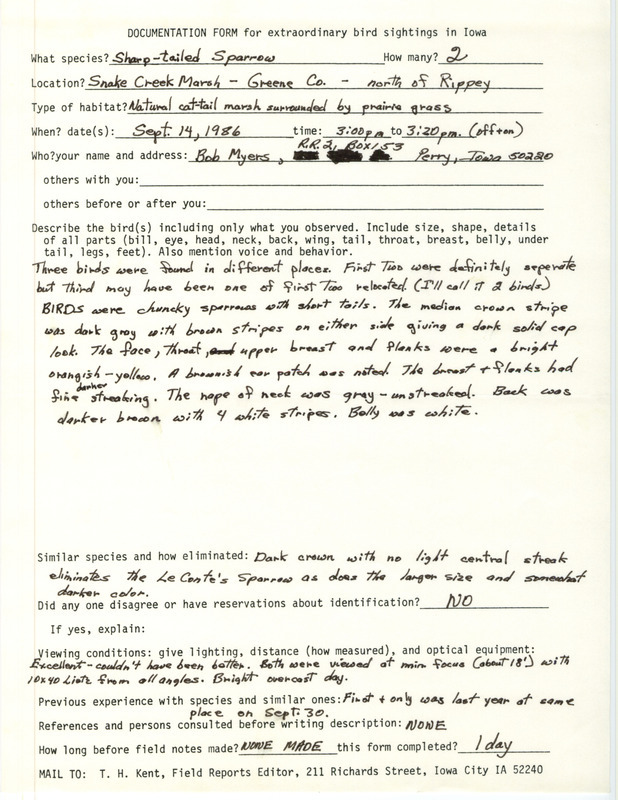 DOCUMENTATION FORM for extraordinary bird sightings in Iowa
What species? Sharp-tailed Sparrow How many? 2
Location? Snake Creek Marsh - Greene Co. - north of Rippey
Type of habitat? Natural cattail marsh surrounded by prairie grass
When? date(s): Sept. 14, 1986 time: 3:00pm to 3:20pm. (off+on)
R.R.2, Box 153
Who? your name and address: Bob Myers, Perry, Iowa 50220
others with you:
others before or after you:
Describe the bird(s) including only what you observed. Include size, shape, details
of all parts (bill, eye, head, neck, back, wing, tail, throat, breast, belly, under
tail, legs, feet). Also mention voice and behavior.
Three birds were found in different places. First Two were definitely seperate
but third may have been one of first Two relocated (I'll call it 2 birds)
BIRDS were chuncky sparrows with short tails. The median crown stripe
was dark gray with brown stripes on either side giving a dark solid cap
look. The face, throat, upper breast and flanks were a bright
orangish-yellow. A brownish ear patch was noted. The breast + flanks had
fine darker streaking. The nape of neck was gray - unstreaked. Back was
darker brown with 4 white stripes. Belly was white.
Similar species and how eliminated: Dark crown with no light central streak
eliminates the Le Conte's Sparrow as does the larger size and somewhat
darker color.
Did any one disagree or have reservations about identification? NO
If yes, explain:
Viewing conditions: give lighting, distance (how measured), and optical equipment:
Excellent - couldn't have been better. Both were viewed at min focus (about 18') with
10x40 Lietz from all angles. Bright overcast day.
Previous experience with species and similar ones: First + only was last year at same
place on Sept. 30.
References and persons consulted before writing description: NONE
How long before field notes made? NONE MADE this form completed? 1 day
MAIL TO: T. H. Kent, Field Reports Editor, 211 Richards Street, Iowa City IA 52240